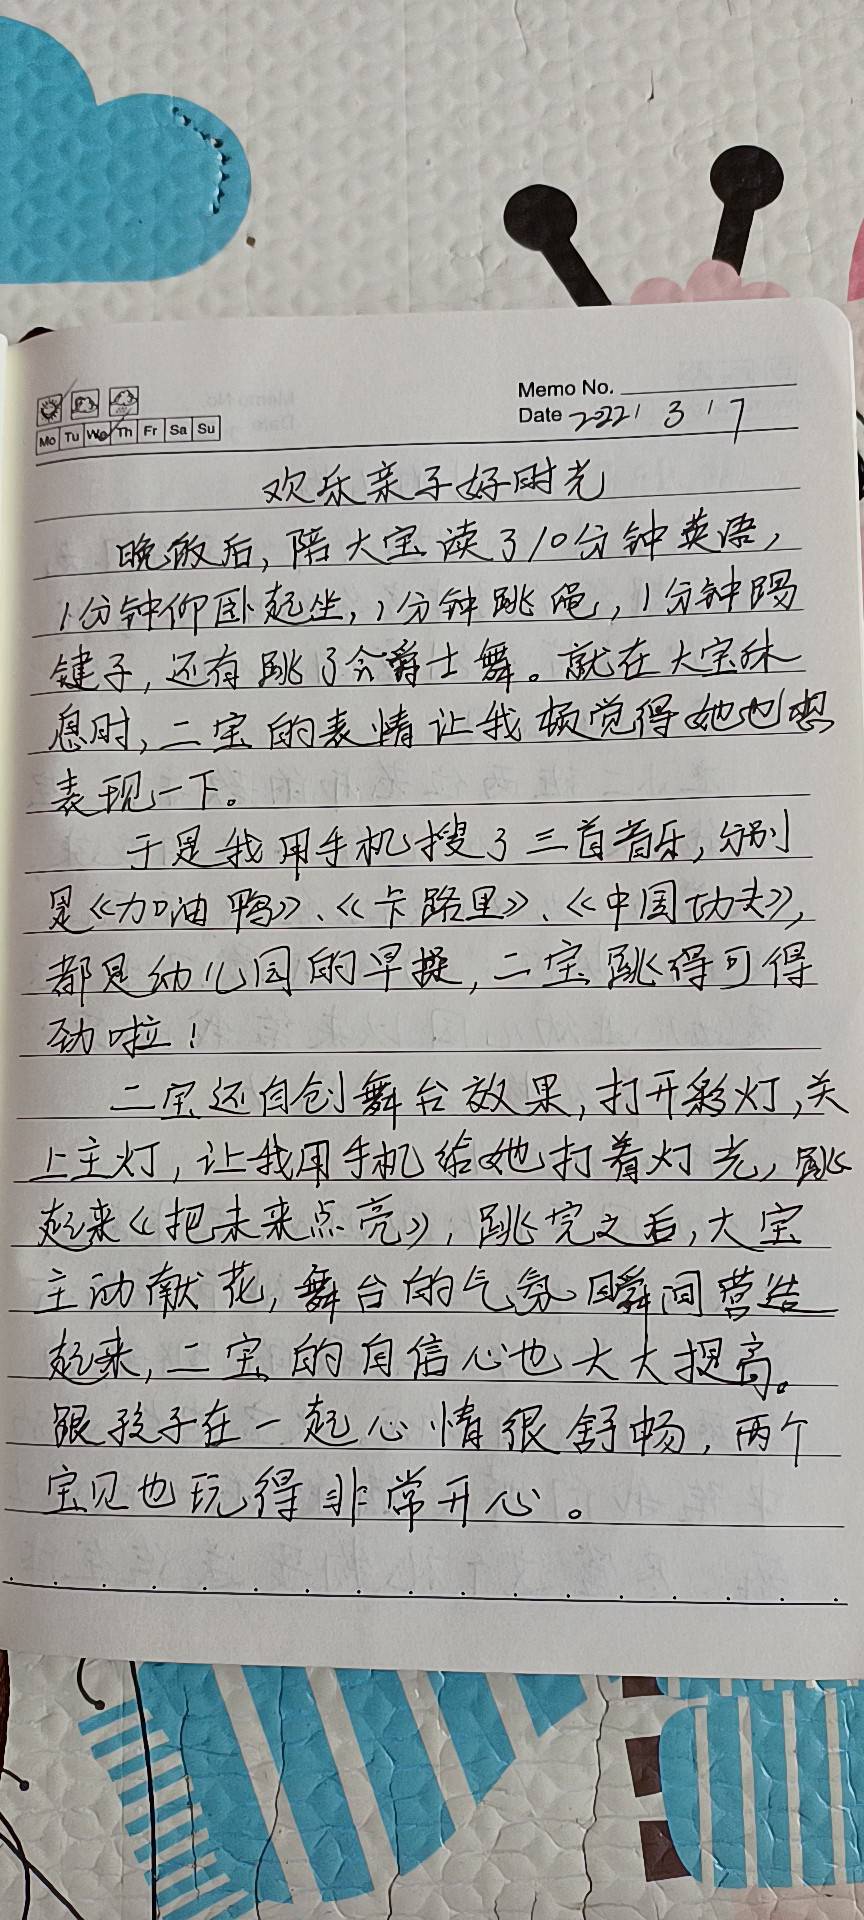 Memo No.
Date 2022 / 3 / 7
Mo Tu We Th Fr Sa Su
欢乐亲子好时光
晚饭后，陪大宝读了10分钟英语，
1分钟仰卧起坐，1分钟跳绳，1分钟踢
键子，还有跳了会爵士舞。就在大宝休
息时，二宝的表情让我顿觉得她也想
表现一下。
于是我用手机搜了三首音乐，分别
是《加油鸭》、《卡路里》、《中国功夫》，
都是幼儿园的早操，二宝跳得可得
劲啦！
二宝还自创舞台效果，打开彩灯，关
上主灯，让我用手机给她打着灯光，跳
起来《把未来点亮》，跳完之后，大宝
主动献花，舞台的气氛瞬间营造
起来，二宝的自信心也大大提高。
跟孩子在一起心情很舒畅，两个
宝贝也玩得非常开心。